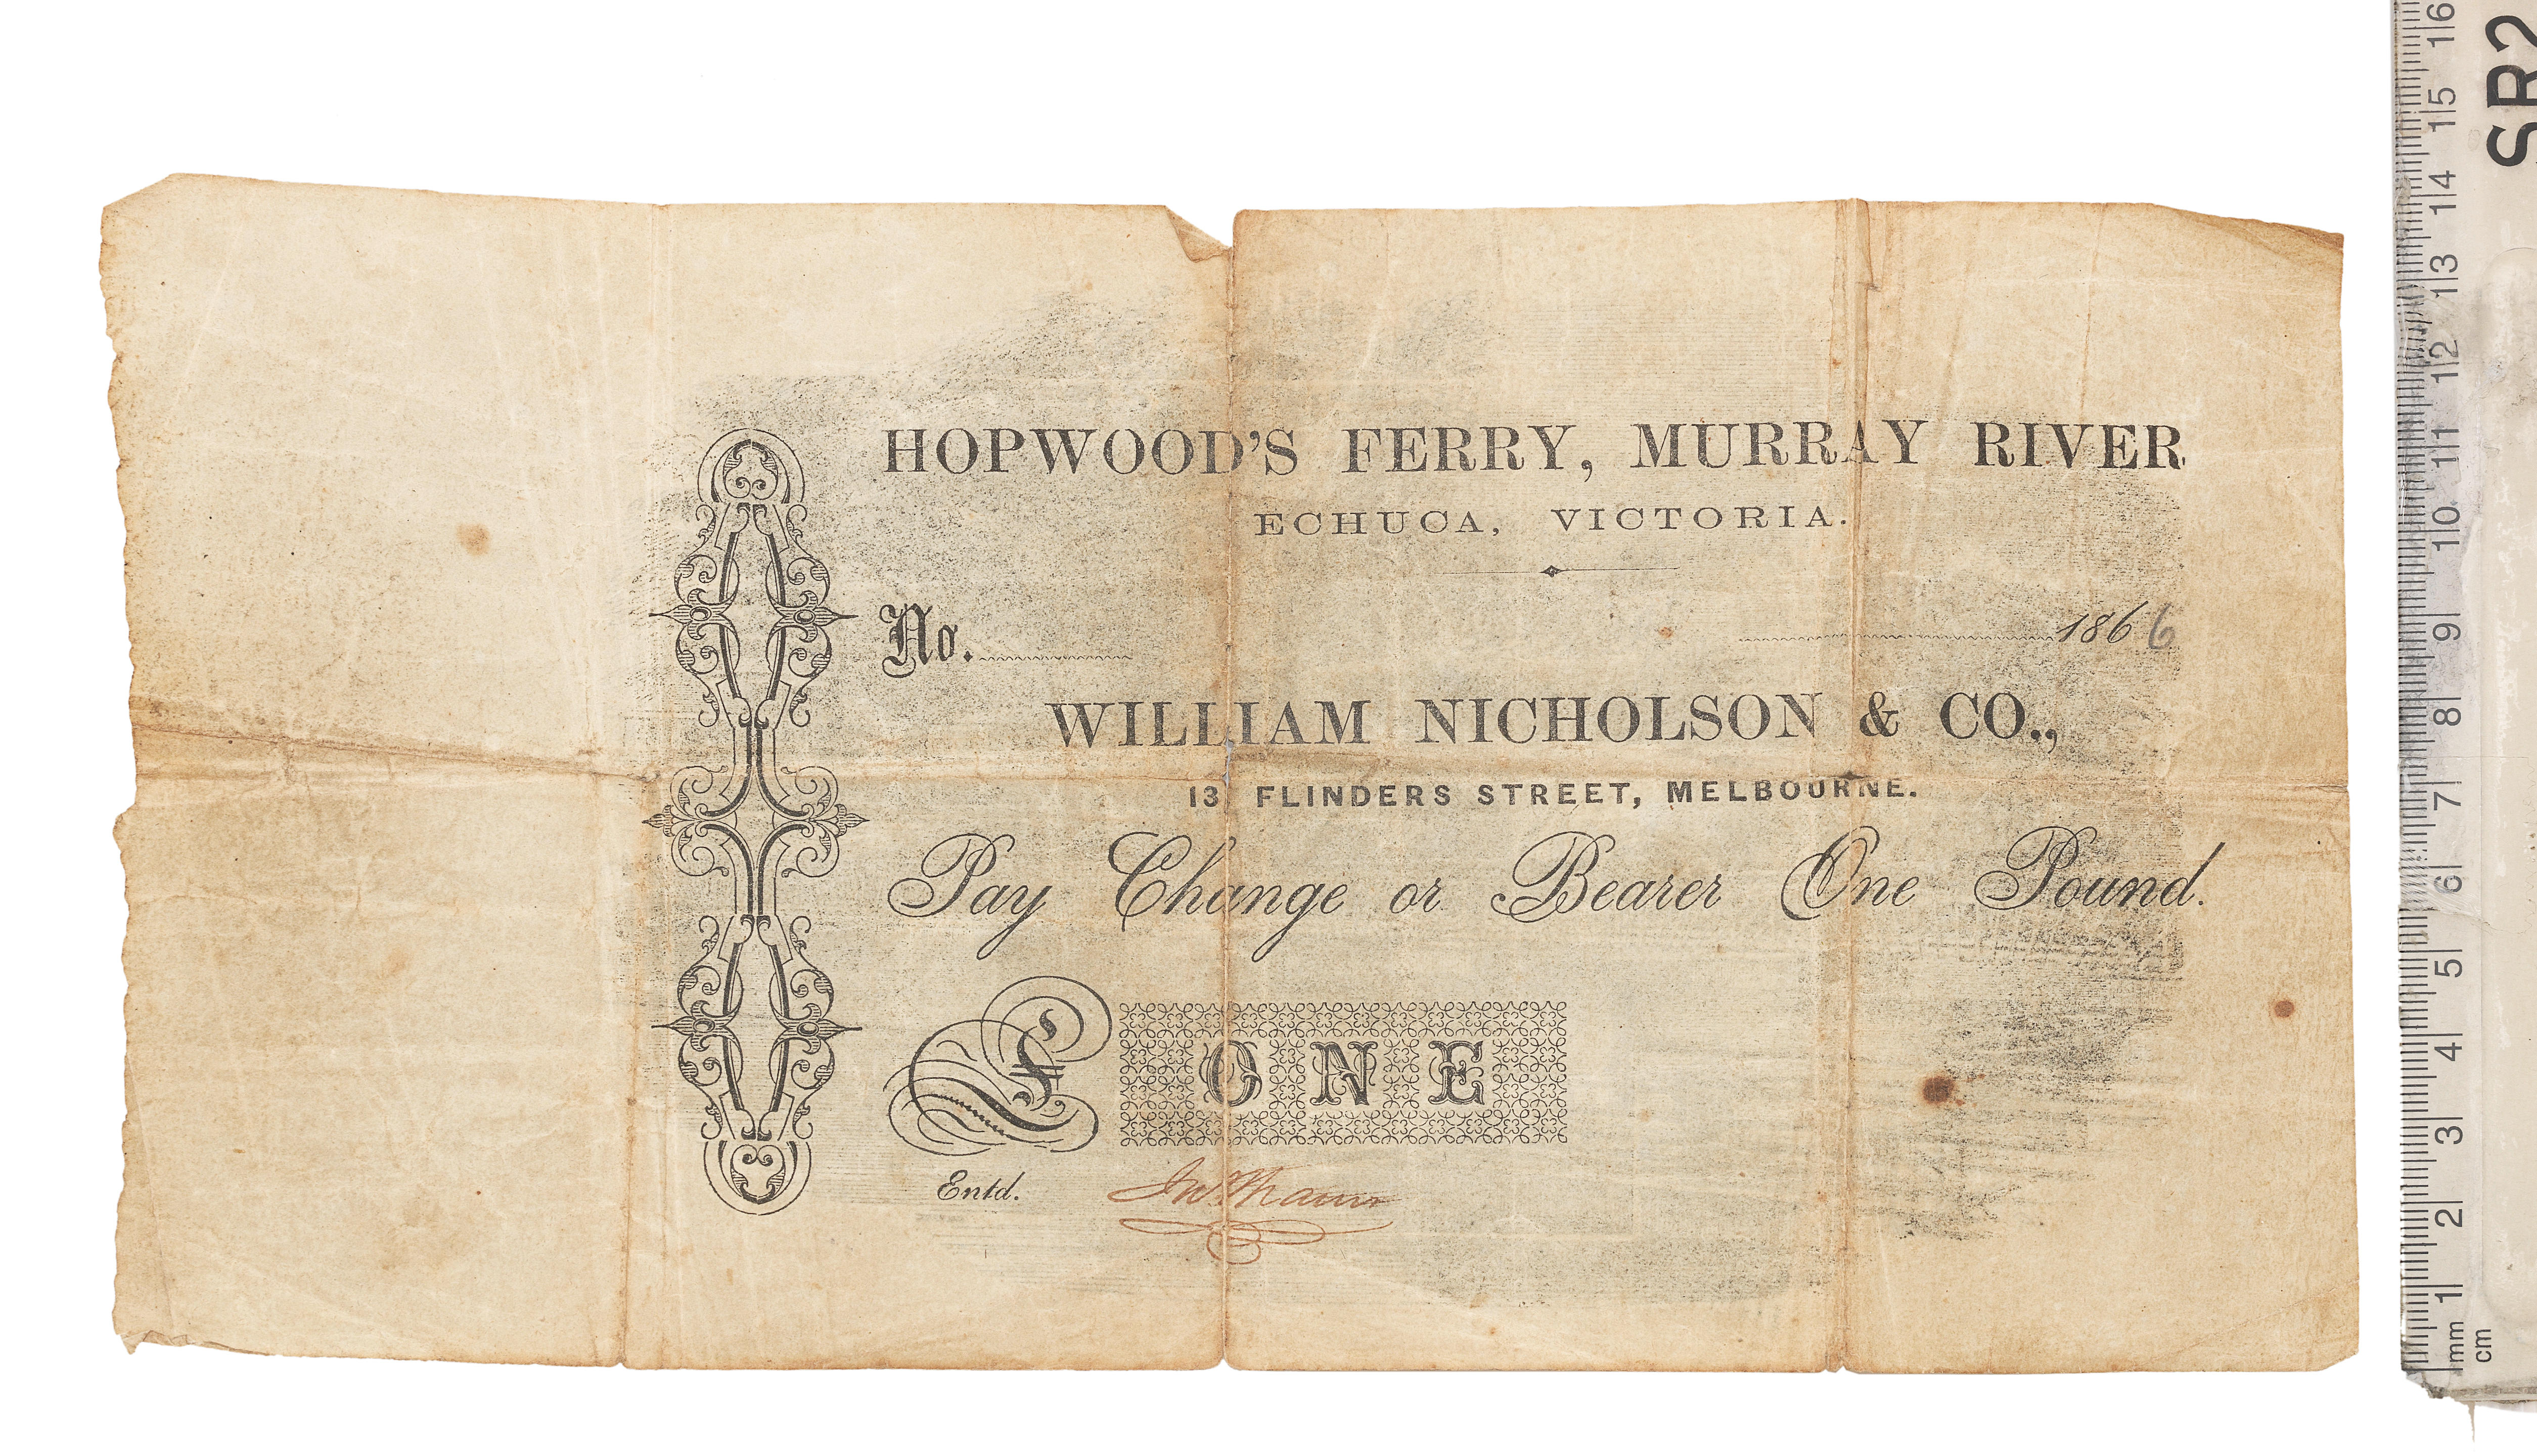 HOPWOOD'S FERRY, MURRAY RIVER
ECHUCA, VICTORIA.
No. 1866
WILLIAM NICHOLSON & CO.,
13 FLINDERS STREET, MELBOURNE.
Pay Change or Bearer One Pound.
£ ONE
Entd.
SR2
16 15 14 13 12 11 10 9 8 7 6 5 4 3 2 1 mm
cm